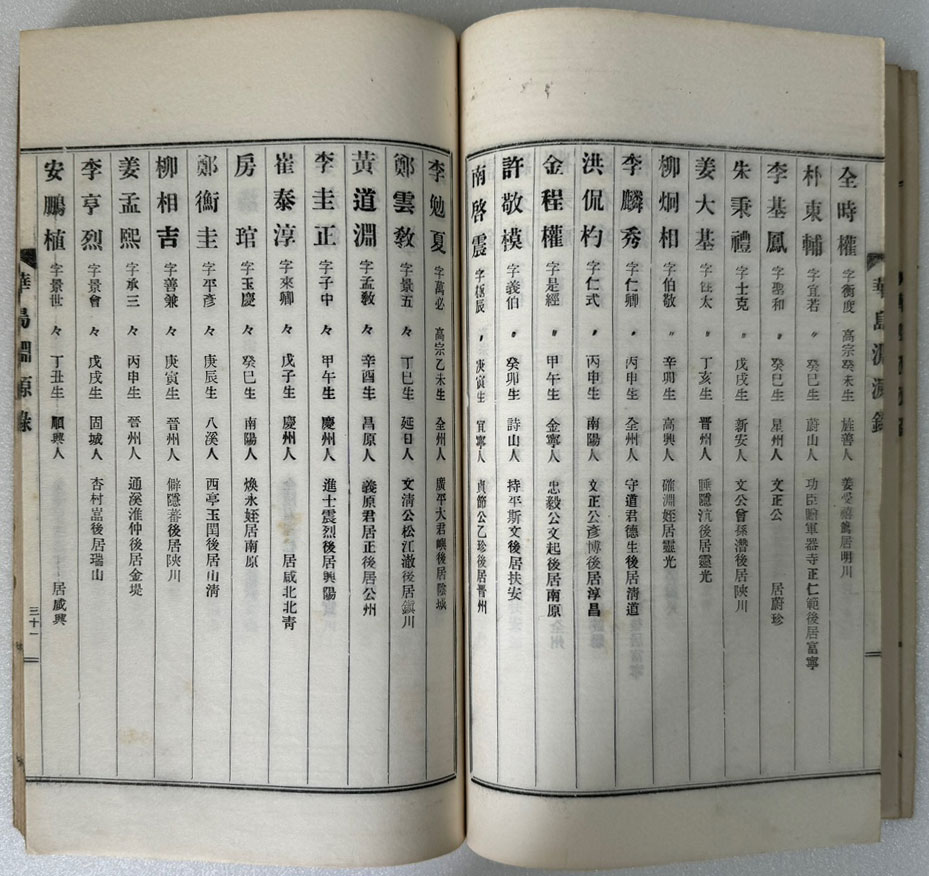 華島淵源錄
全時權 字衡度 高宗癸未生 旌善人 居明川
朴東輔 字宜若 〃 癸巳生 蔚山人 功臣贈軍器寺正仁範後居富寧
李基鳳 字聖和 〃 癸巳生 星州人 文正公 居蔚珍
朱秉禮 字士克 〃 戊戌生 新安人 文公曾孫潛後居陜川
姜大基 字 太 〃 丁亥生 晋州人 睡隱沆後居靈光
柳炯相 字伯敬 〃 辛卯生 高興人 確淵姪居靈光
李麟秀 字仁卿 〃 丙申生 全州人 守道君德生後居清道
洪侃杓 字仁式 〃 丙申生 南陽人 文正公彥博後居淳昌
金程權 字是經 〃 甲午生 金寧人 忠毅公文起後居南原
許敬模 字義伯 〃 癸卯生 詩山人 持平斯文後居扶安
南啓震 字 辰 〃 庚寅生 宜寧人 貞節公乙珍後居晋州
李勉夏 字萬必 高宗乙未生 全州人 廣平大君璵後居陰城
鄭雲敎 字景五 々 丁巳生 延日人 文清公松江澈後居鎭川
黃道淵 字孟敎 々 辛酉生 昌原人 義原君居正後居公州
李圭正 字子中 々 甲午生 慶州人 進士震烈後居興陽
崔泰淳 字來卿 々 戊子生 慶州人 居咸北北靑
房琯 字玉慶 々 癸巳生 南陽人 煥永姪居南原
鄭衡圭 字平彥 々 庚辰生 八溪人 西亭玉閏後居山清
柳相吉 字善兼 々 庚寅生 晉州人 僻隱蕃後居陜川
姜孟熙 字承三 々 丙申生 晉州人 通溪淮仲後居金堤
李亨烈 字景會 々 戊戌生 固城人 杏村嵓後居瑞山
安鵬植 字景世 々 丁丑生 順興人 居咸興
華島淵源錄
三十一